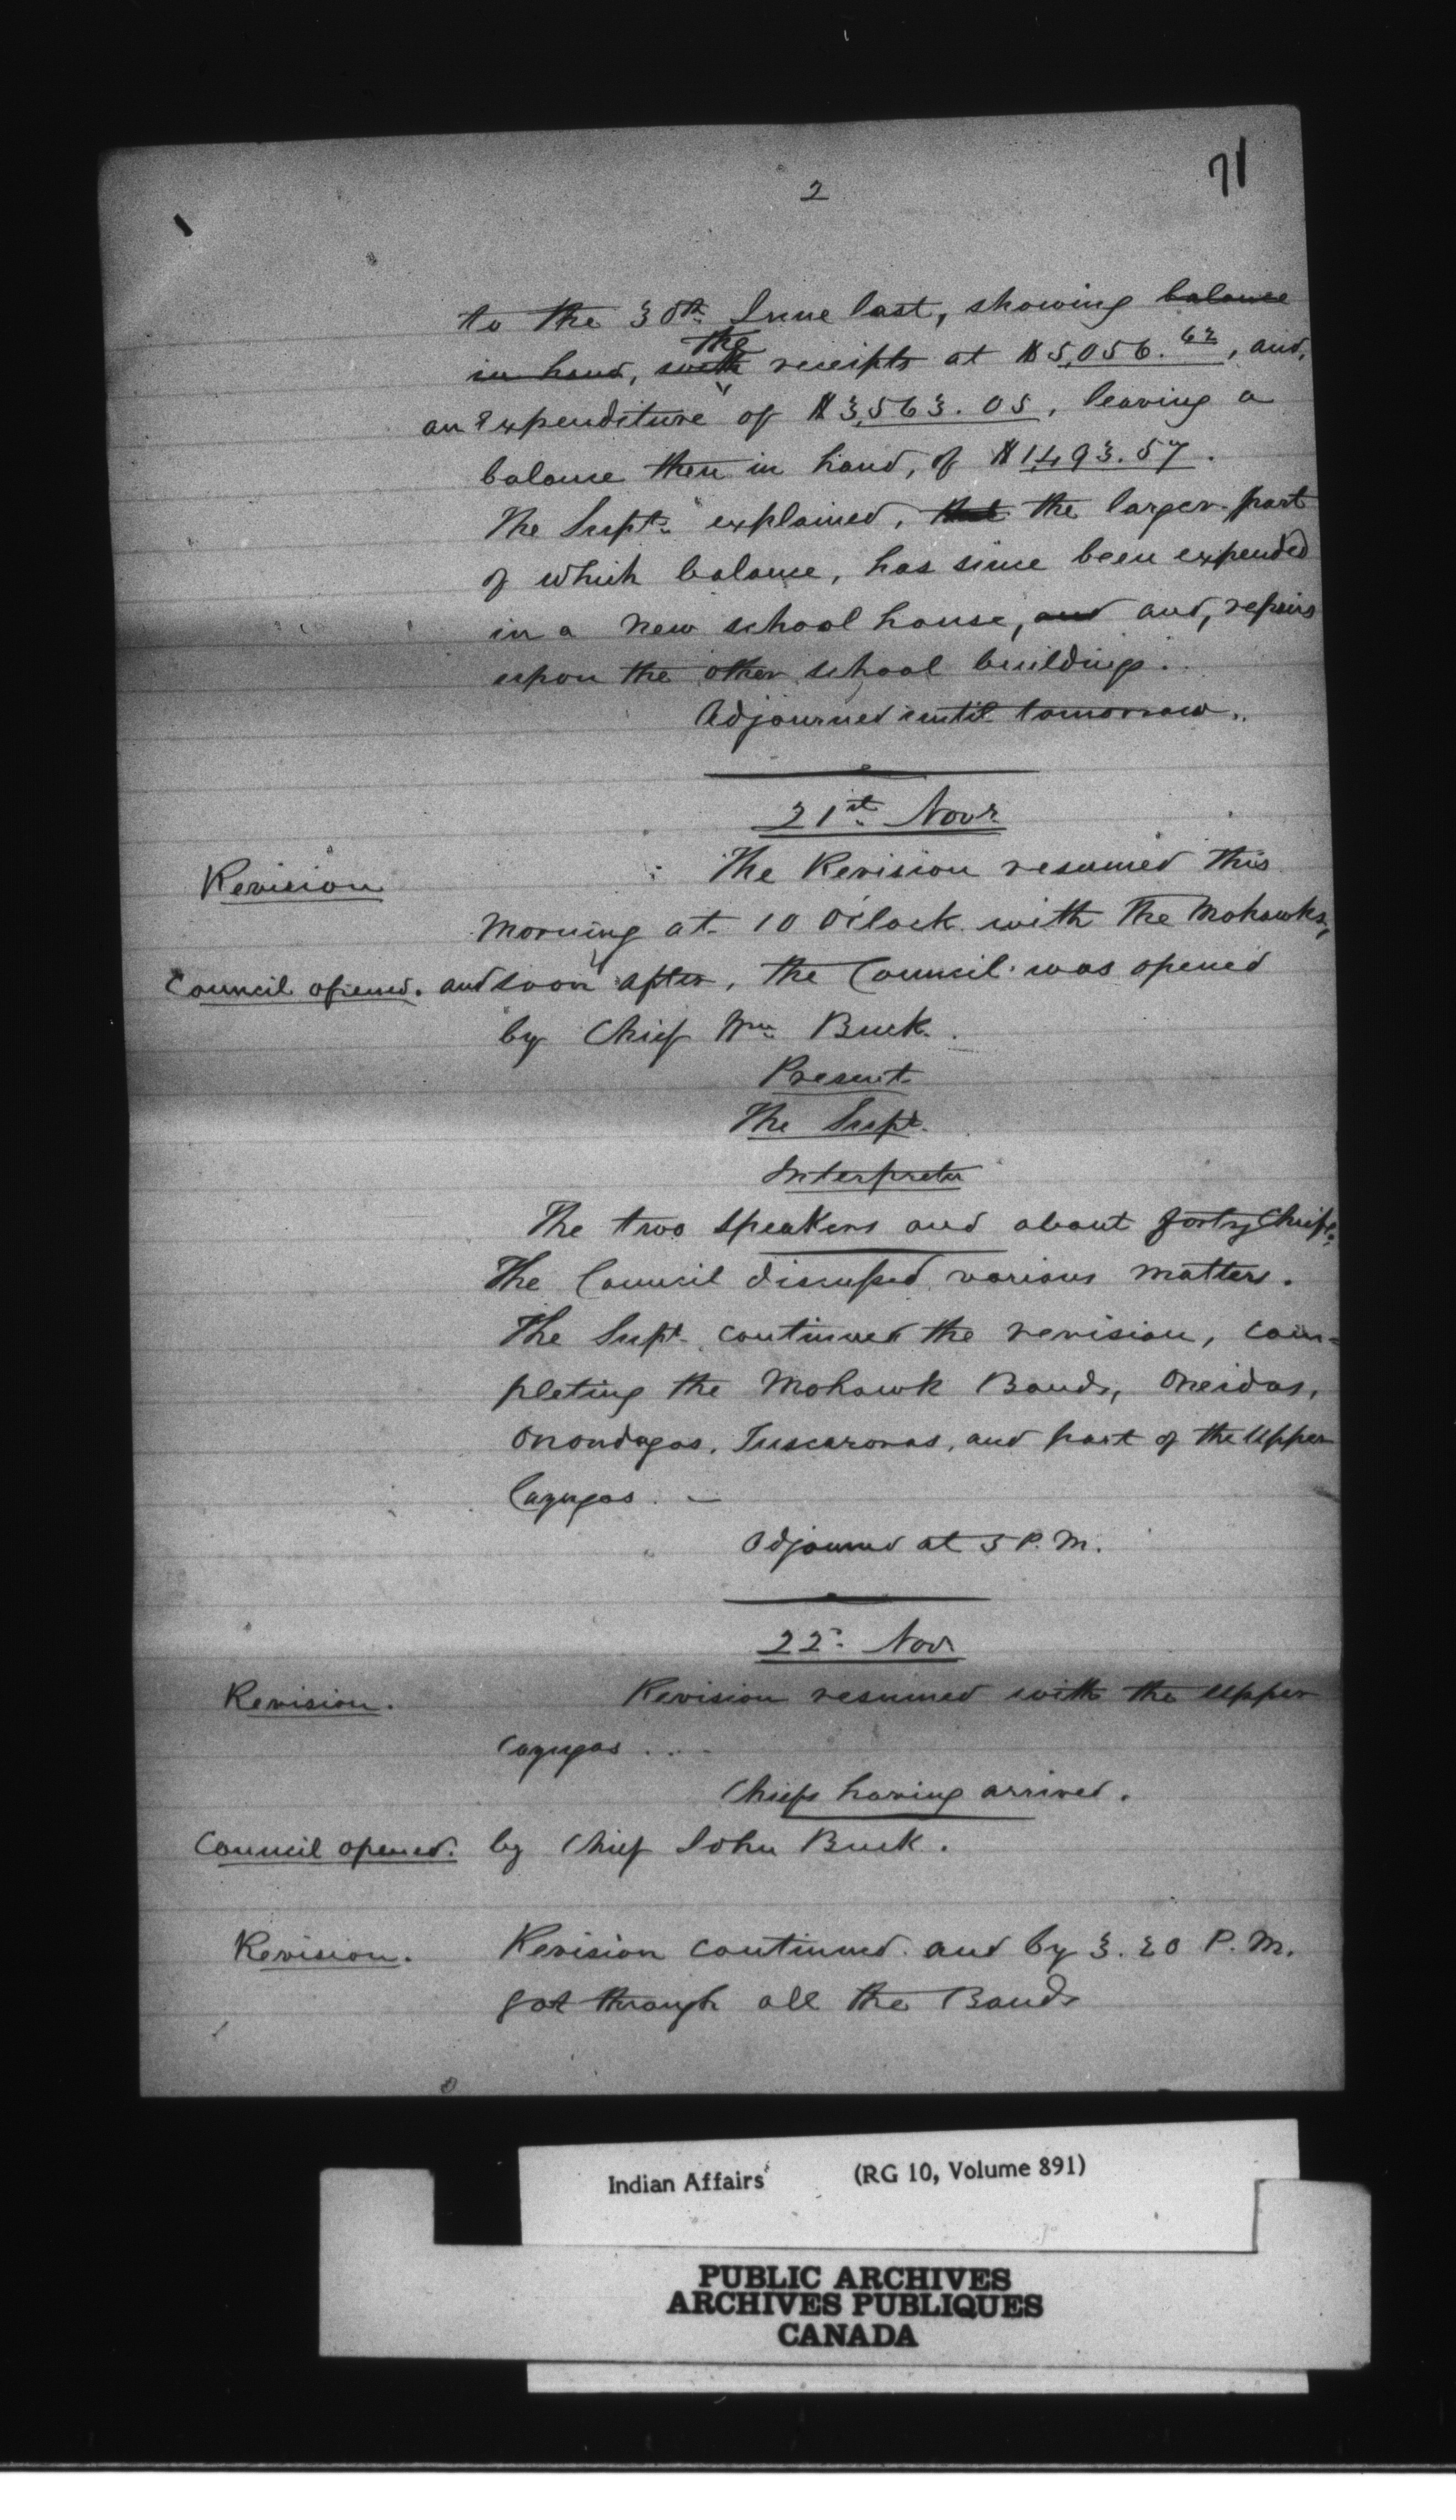 2
71
to the 30th June last, showing balance
in hand, with the receipts at $5,056.62, and,
an expenditure of $3,563.05, leaving a
balance then in hand, of $1,493.57.
The Supt. explained, that the larger part
of which balance, has since been expended
in a new school house, and and, repairs
upon the other school buildings.
Adjourned until tomorrow.
21st Novr
Revision
The Revision resumed this
morning at 10 O'clock with the Mohawks,
Council opened. and soon after, the Council was opened
by Chief Wm Buck.
Present
The Supt.
Interpreter
The two speakers and about forty Chiefs.
The Council discussed various matters.
The Supt. continued the revision, com-
pleting the Mohawk Bands, Oneidas,
Onondagas, Tuscaroras, and part of the Upper
Cayugas. —
Adjourned at 5 P.M.
22. Novr
Revision. Revision resumed with the Upper
Cayugas ...
Chiefs having arrived.
Council opened. by Chief John Buck.
Revision. Revision continued and by 3.20 P.M.
got through all the Bands
Indian Affairs (RG 10, Volume 891)
PUBLIC ARCHIVES
ARCHIVES PUBLIQUES
CANADA